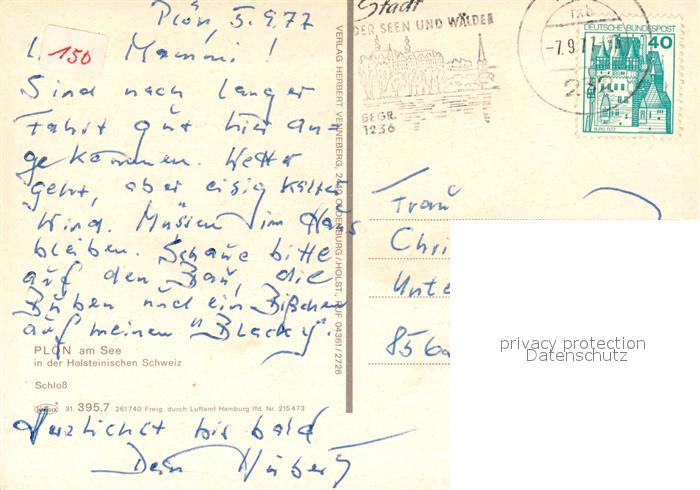 Plön, 5.9.77
150
L. Mammi!
Sind nach langer
Fahrt gut hier an-
gekommen. Wetter
geht, aber eisig kalter
Wind. Müssen im Haus
bleiben. Schaue bitte
auf den Bau, die
Buben und ein Bißchen
auf meinen "Blacky".
PLÖN am See
in der Holsteinischen Schweiz
Schloß
31. 395.7 261740 Freig. durch Luftamt Hamburg lfd. Nr. 215473
Herzlichst bis bald
Dein Hubert
VERLAG HERBERT VENNEBERG, 2440 OLDENBURG/HOLST. RUF 04361/2726
Stadt
DER SEEN UND WÄLDER
GEGR.
1236
-7.9.77
DEUTSCHE BUNDESPOST
40
BURG ELTZ
Frau
Chri
Unte
856
privacy protection
Datenschutz